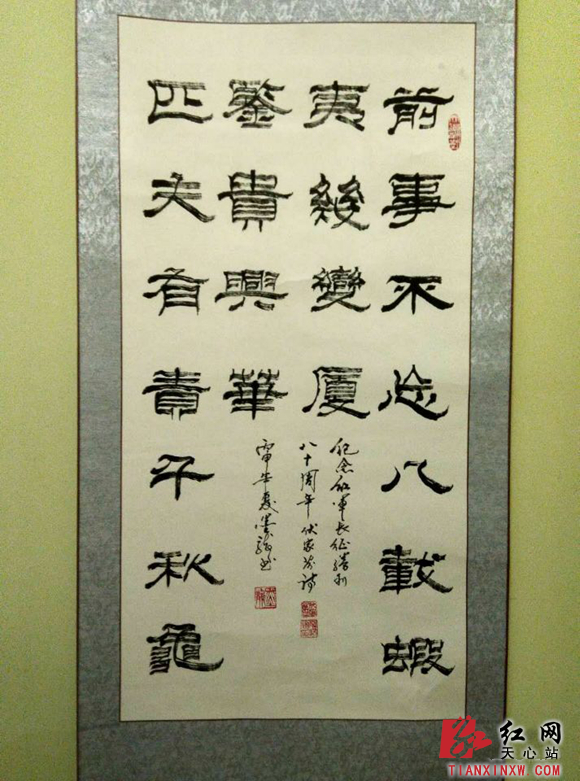 前事不忘八載蝦
夷幾變厦
紀念紅軍長征勝利
八十周年伏家芬詩
匹夫有責千秋龜
鑒貴興華
丙申年夏
红网
天心站
TIANXINXW.COM